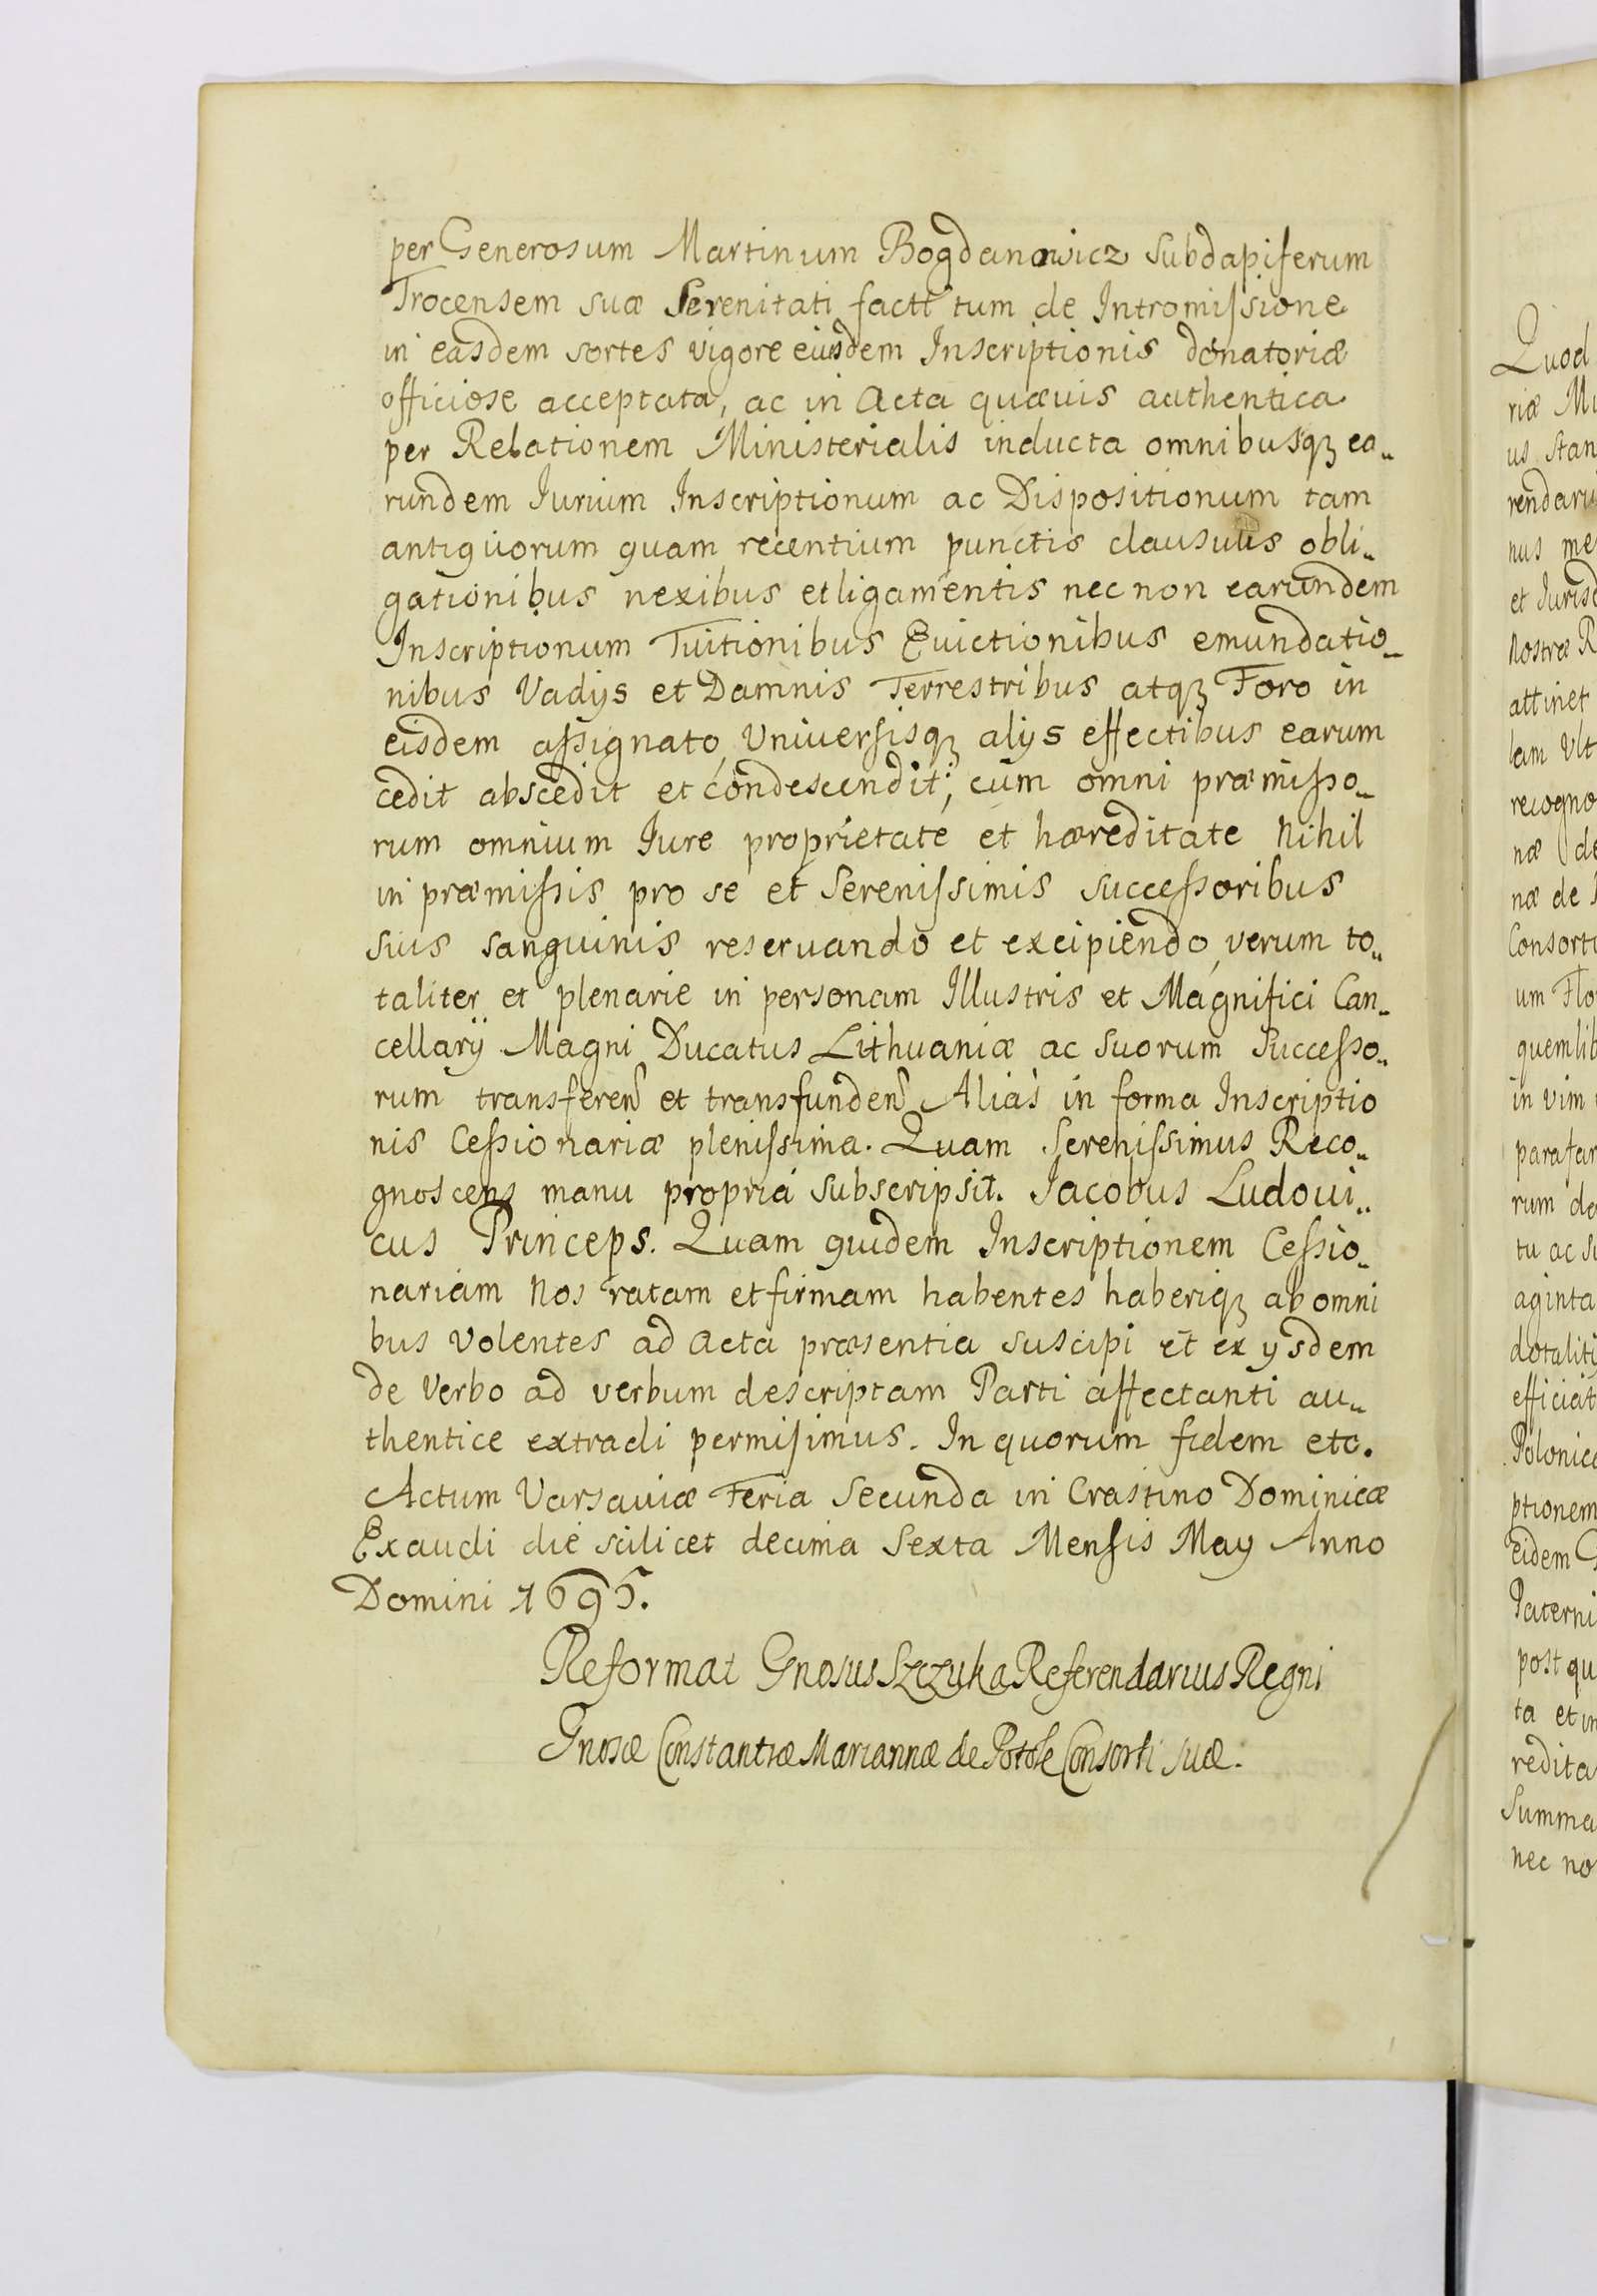 per Generosum Martinum Bogdanowicz Subdapiferum
Trocensem suæ Serenitati factt tum de Intromissione
in easdem sortes vigore eiusdem Inscriptionis donatoriæ
officiose acceptata, ac in Acta quævis authentica
per Relationem Ministerialis inducta omnibusqꝫ ea„
rundem Iurium Inscriptionum ac Dispositionum tam
antiquorum quam recentium punctis clausulis obli„
gationibus nexibus et ligamentis nec non earundem
Inscriptionum Tuitionibus Evictionibus emundatio„
nibus Vadys et Damnis Terrestribus atqꝫ Foro in
eisdem assignato, Universisqꝫ alys effectibus earum
cedit abscedit et condescendit; cum omni præmisso„
rum omnium Iure proprietate et hæreditate Nihil
in præmissis pro se et Serenissimis successoribus
suis sanguinis reservando et excipiendo, verum to„
taliter et plenarie in personam Illustris et Magnifici Can„
cellarÿ Magni Ducatus Lithuaniæ ac suorum Successo„
rum transferen et transfunden Alias in forma Inscriptio
nis Cessionariæ plenissima. Quam Serenissimus Reco„
gnoscens manu propriá subscripsit. Jacobus Ludovi„
cus Princeps. Quam quidem Inscriptionem Cessio„
nariam Nos ratam et firmam habentes haberiqꝫ ab omni
bus volentes ad Acta præsentia suscipi et ex ysdem
de Verbo ad verbum descriptam Parti affectanti au„
thentice extradi permisimus. In quorum fidem etc.
Actum Varsaviæ Feria Secunda in Crastino Dominicæ
Exaudi die scilicet decima Sexta Mensis May Anno
Domini 1695.
Reformat Gnosus Szczuka Referendarius Regni
Gnosæ Constantiæ Mariannæ de Potok Consorti suæ.
Quod
riæ
us Stan
nus me
et Iurisd
Nostræ R
attinet
lam Ult
recogno
næ de
næ de
Consorti
um Flo
quemlib
in vim
rum de
tu ac su
aginta
dotaliti
efficiat
Polonica
ptionem
Eidem G
Paterni
post qu
ta et in
redita
Summa
nec no